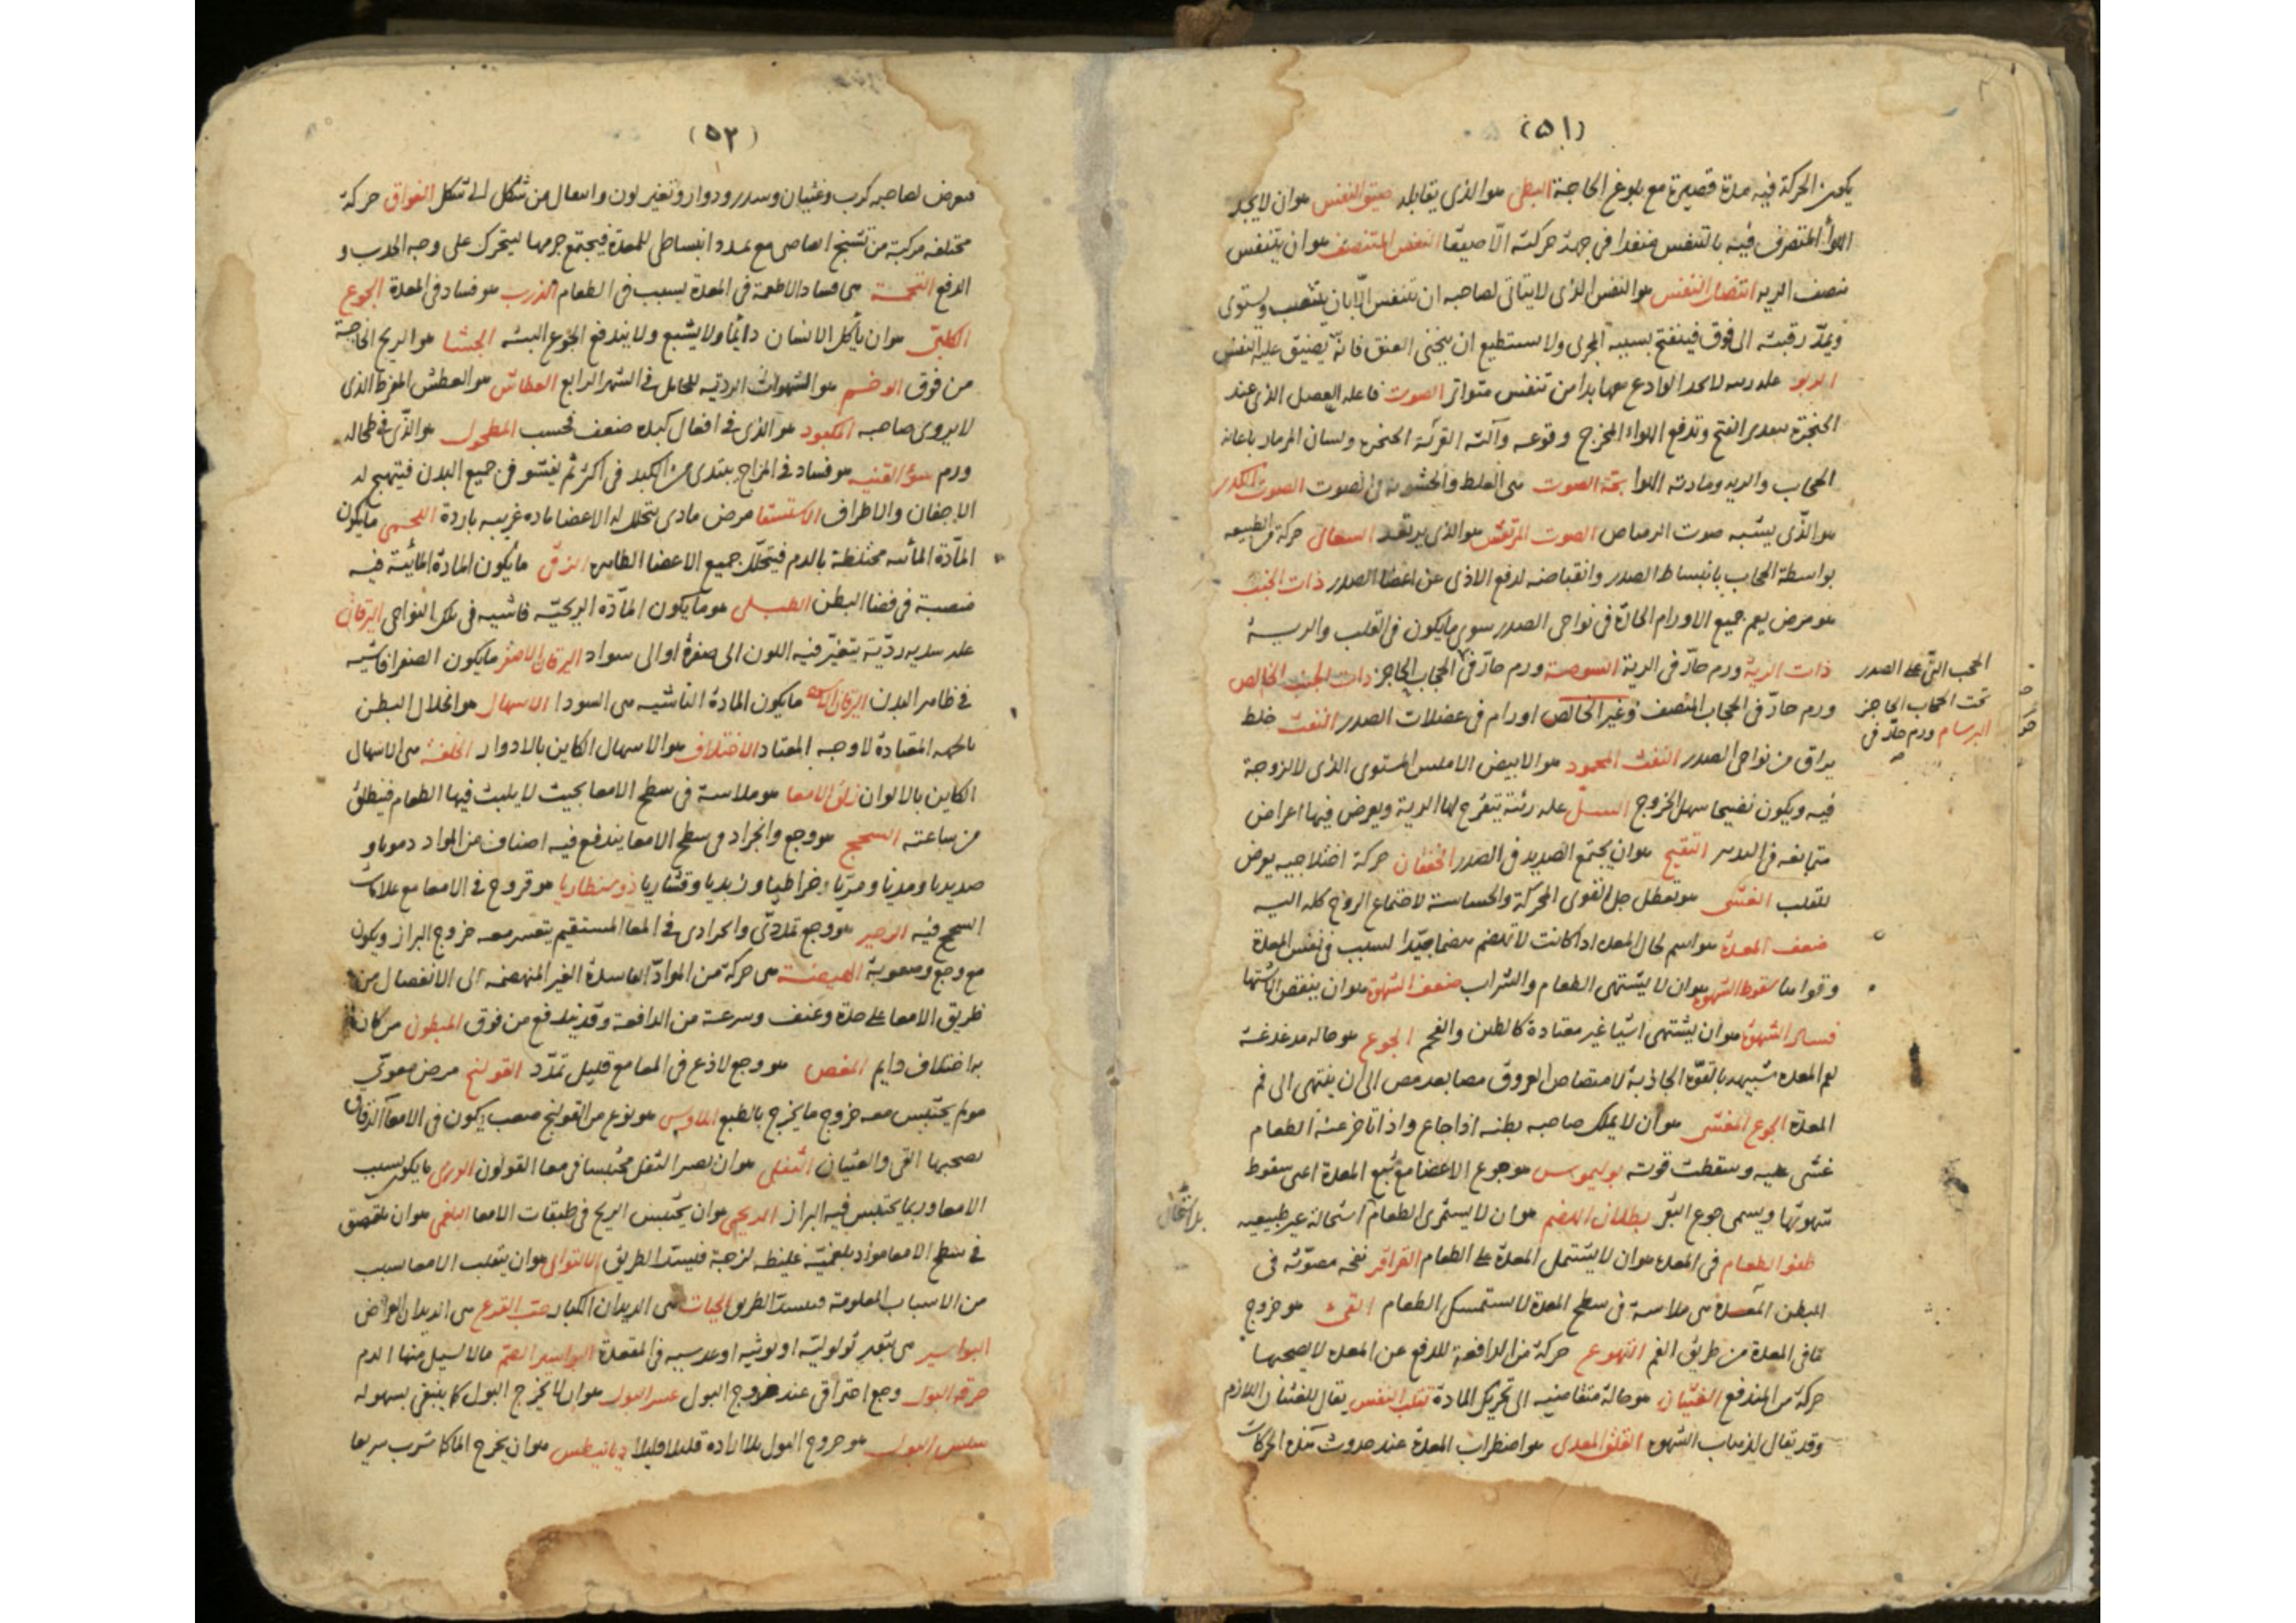 (٥١)
يكون الحركة فيه مدة قصيرة مع بلوغ الحاجة البطى هو الذى يقابله ضيق النفس هو ان لا يجد
الهوأ المتصرف فيه بالتنفس منفدا فى جهة حركته الّا ضيقا النفس المنتصف هو ان يتنفس
بنصف الريه انتصاب النفس هو النفس الذى لا يتاتى لصاحبه ان يتنفس الّا بان ينتصب ويستوى
ويمدّ رقبته الى فوق فينفتح بسببه المجرى ولا يستطيع ان يحنى العنق فانه يضيق عليه النفس
الربو عله ريه لا يجد الوادع معها بدا من تنفس متواتر الصوت فاعله العضل الذى عند
الحنجرة بتقدير الفتح وتدفع الهواء المخرج وقرعه وآلته القريبة الحنجره ولسان المزمار باعانة
الحجاب والريه ومادته الهوا بحّة الصوت هى الغلظ والخشونة فى الصوت الصوت الكدر
هو الذّى يشبه صوت الرصاص الصوت المرتعش هو الذى يرتعد السعال حركة من الطبيعه
بواسطة الحجاب بانبساط الصدر وانقباضه لدفع الاذى عن اعضا الصدر ذات الجنب
هو مرض يعم جميع الاورام الحادّة فى نواحى الصدر سوى ما يكون فى القلب والريـة
ذات الرية ورم حارّ فى الرية الشوصة ورم حارّ فى الحجاب الحاجز ذات الجنب الخالص
الحجب التى على الصدر
تحت الحجاب الحاجز
البرسام ورم حارّ فى
ورم حارّ فى الحجاب المنصف وغير الخالص اورام فى عضلات الصدر النفث خلط
يراق من نواحى الصدر النفث المحمود هو الابيض الاملس المستوى الذى لا لزوجة
فيه ويكون نضيجا سهل الخروج السـلّ عله رئية يتقرح لها الرية ويعرض فيها اعراض
متتابعه فى البدن التقيح هو ان يجتمع الصديد فى الصدر الخفقان حركة اختلاجيه يعرض
للقلب الغشى هو تعطل جل القوى المحركة والحساسة لاجتماع الروح كله اليـه
ضعف المعدة هو اسم لحال المعده اذا كانت لا تهضم هضما جيّدا لسبب فى نفس المعدة
وقواها سقوط الشهوة هو ان لا يشتهى الطعام والشراب ضعف الشهوة هو ان ينقص الاشتها
فساد الشهوة هو ان يشتهى اشيا غير معتادة كالطين والفحم الجوع هو حاله مدغدغة
لفم المعده شبيهه بالقوّة الجاذبة لامتصاص العروق مصا بعد مص الى ان ينتهى الى فم
المعدة الجوع المغشى هو ان لا يملك صاحبه بطنـه اذا جاع واذا تاخر عنـه الطعام
غشى عليه وسقطت قوته بوليموس هو جوع الاعضا مع شبع المعدة اعنى سقوط
شهوتها ويسمى جوع البقر بطلان الهضم هو ان لا يستمرى الطعام استحالة غير طبيعيه
طفو الطعام فى المعده هو ان لا يشتمل المعدة على الطعام القراقر نفخه مصوّته فى
البطن المعـدة هى ملاسة فى سطح المعدة لا يستمسك الطعام القىء هو خروج
ما فى المعدة من طريق الفم التهوع حركة من الدافعة للدفع عن المعده لا يصحبها
حركة من المندفع الغثيان هو حالة متقاضيه الى تحريك المادة تقلب النفس يقال للغثيان اللازم
وقد يقال لذهاب الشهوه القلق المعدى هو اضطراب المعدة عند حدوث هذه الحركات
(٥٢)
فيعرض لصاحبه كرب وغثيان وسدر ودوار وتغير لون وانتقال من شكل الى شكل الفواق حركة
مختلفه مركبة من تشنج انقباضى مع تمدد انبساطى للمعدة فيجتمع جرمها ليتحرك على وجه الهرب و
الدفع التخمـة هى فساد الاطعمة فى المعدة لسبب فى الطعام الذرب هو فساد فى المعدة الجوع
الكلبىّ هو ان يأكل الانسان دايمًا ولا يشبع ولا يندفع الجوع البتـه الجشا هو الريح الخارجة
من فوق الوخـم هو الشهوات الرديه للحامل فى الشهر الرابع العطاش هو العطش المفرط الذى
لا يروى صاحبه المكبود هو الذى فى افعال كبده ضعف فحسب المطحول هو الذّى فى طحاله
ورم سوء القنيه هو فساد فى المزاج يبتدى من الكبد فى اكثر ثم يفشو فى جميع البدن فيتهيج له
الاجفان والاطراف الاستسقا مرض مادى يتخلل له الاعضا ماده غريبه باردة اللحمى ما يكون
المآدّة المائيه مختلطة بالدم فيتخلل جميع الاعضا الظاهره الزقى ما يكون المادة المائيّة فيه
منصبة فى فضا البطن الطبـلى هو ما يكون المادّة الريحيّة فاشيه فى تلك النواحى اليرقان
عله بدنيه رديّة يتغيّر فيه اللون الى صفرة او الى سواد اليرقان الاصفر ما يكون الصفرا فاشيه
فى ظاهر البدن اليرقان الاسود ما يكون المادة الفاشيه هى السودا الاسهال هو انحلال البطن
بالجهه المعتادة لا وجه المعتاد الاختلاف هو الاسهال الكاين بالادوار الخلفـة هى الاسهال
الكاين بالالوان زلق الامعا هو ملاسة فى سطح الامعا بحيث لا يلبث فيها الطعام فينطلق
من ساعته السحج هو وجع وانجراد فى سطح الامعا يندفع فيه اصناف من المواد دمويا و
صديديا ومديا ومرّيا وخراطيا وزبديا وقشاريا ذوسنطاريا هو قروح فى الامعا مع علامات
السحج فيه الزحير هو وجع تمددّى وانجرادى فى المعا المستقيم يتعسر معه خروج البراز ويكون
مع وجع وصعوبة الهيضـة هى حركة من الموادّ الفاسدة الغير المنهضمه الى الانفصال من
طريق الامعا على حدة وعنف وسرعة من الدافعة وقد يندفع من فوق المبطون من كان
به اختلاف دايم المغص هو وجع لاذع فى المعا مع قليل تمدّد القولنج مرض معوىّ
مولم يحتبس معه خروج ما يخرج بالطبع ايلاوس هو نوع من القولنج صعب يكون فى الامعآ الدقاق
يصحبها القى والغثيان الثفلى هو ان يصير الثفل محتبسا فى معا القولون الورمى ما يكون بسبب
الامعا وربما يحتبس فيه البراز الريحى هو ان يحتبس الريح فى طبقات الامعا البلغمى هو ان يلتصق
فى سطح الامعا مواد بلغميّه غليظه لزجة فيسدّ الطريق الالتوائى هو ان ينقلب الامعا بسبب
من الاسباب المعلومة فيسدّ الطريق الحيات هى الديدان الكبار حب القرع هى الديدان العراض
البواسير هى بثور ثولوليّه او توثيه او عدسيه فى المقعدة البواسير الصم ما لا يسيل منها الدم
حرقة البول وجع احتراقى عند خروج البول عسر البول هو ان لا يخرج البول كما ينبغى بسهوله
سلس البول هو خروج البول بلا اراده قليلا قليلا ديانيطس هو ان يخرج الماء كما شرب سريعا